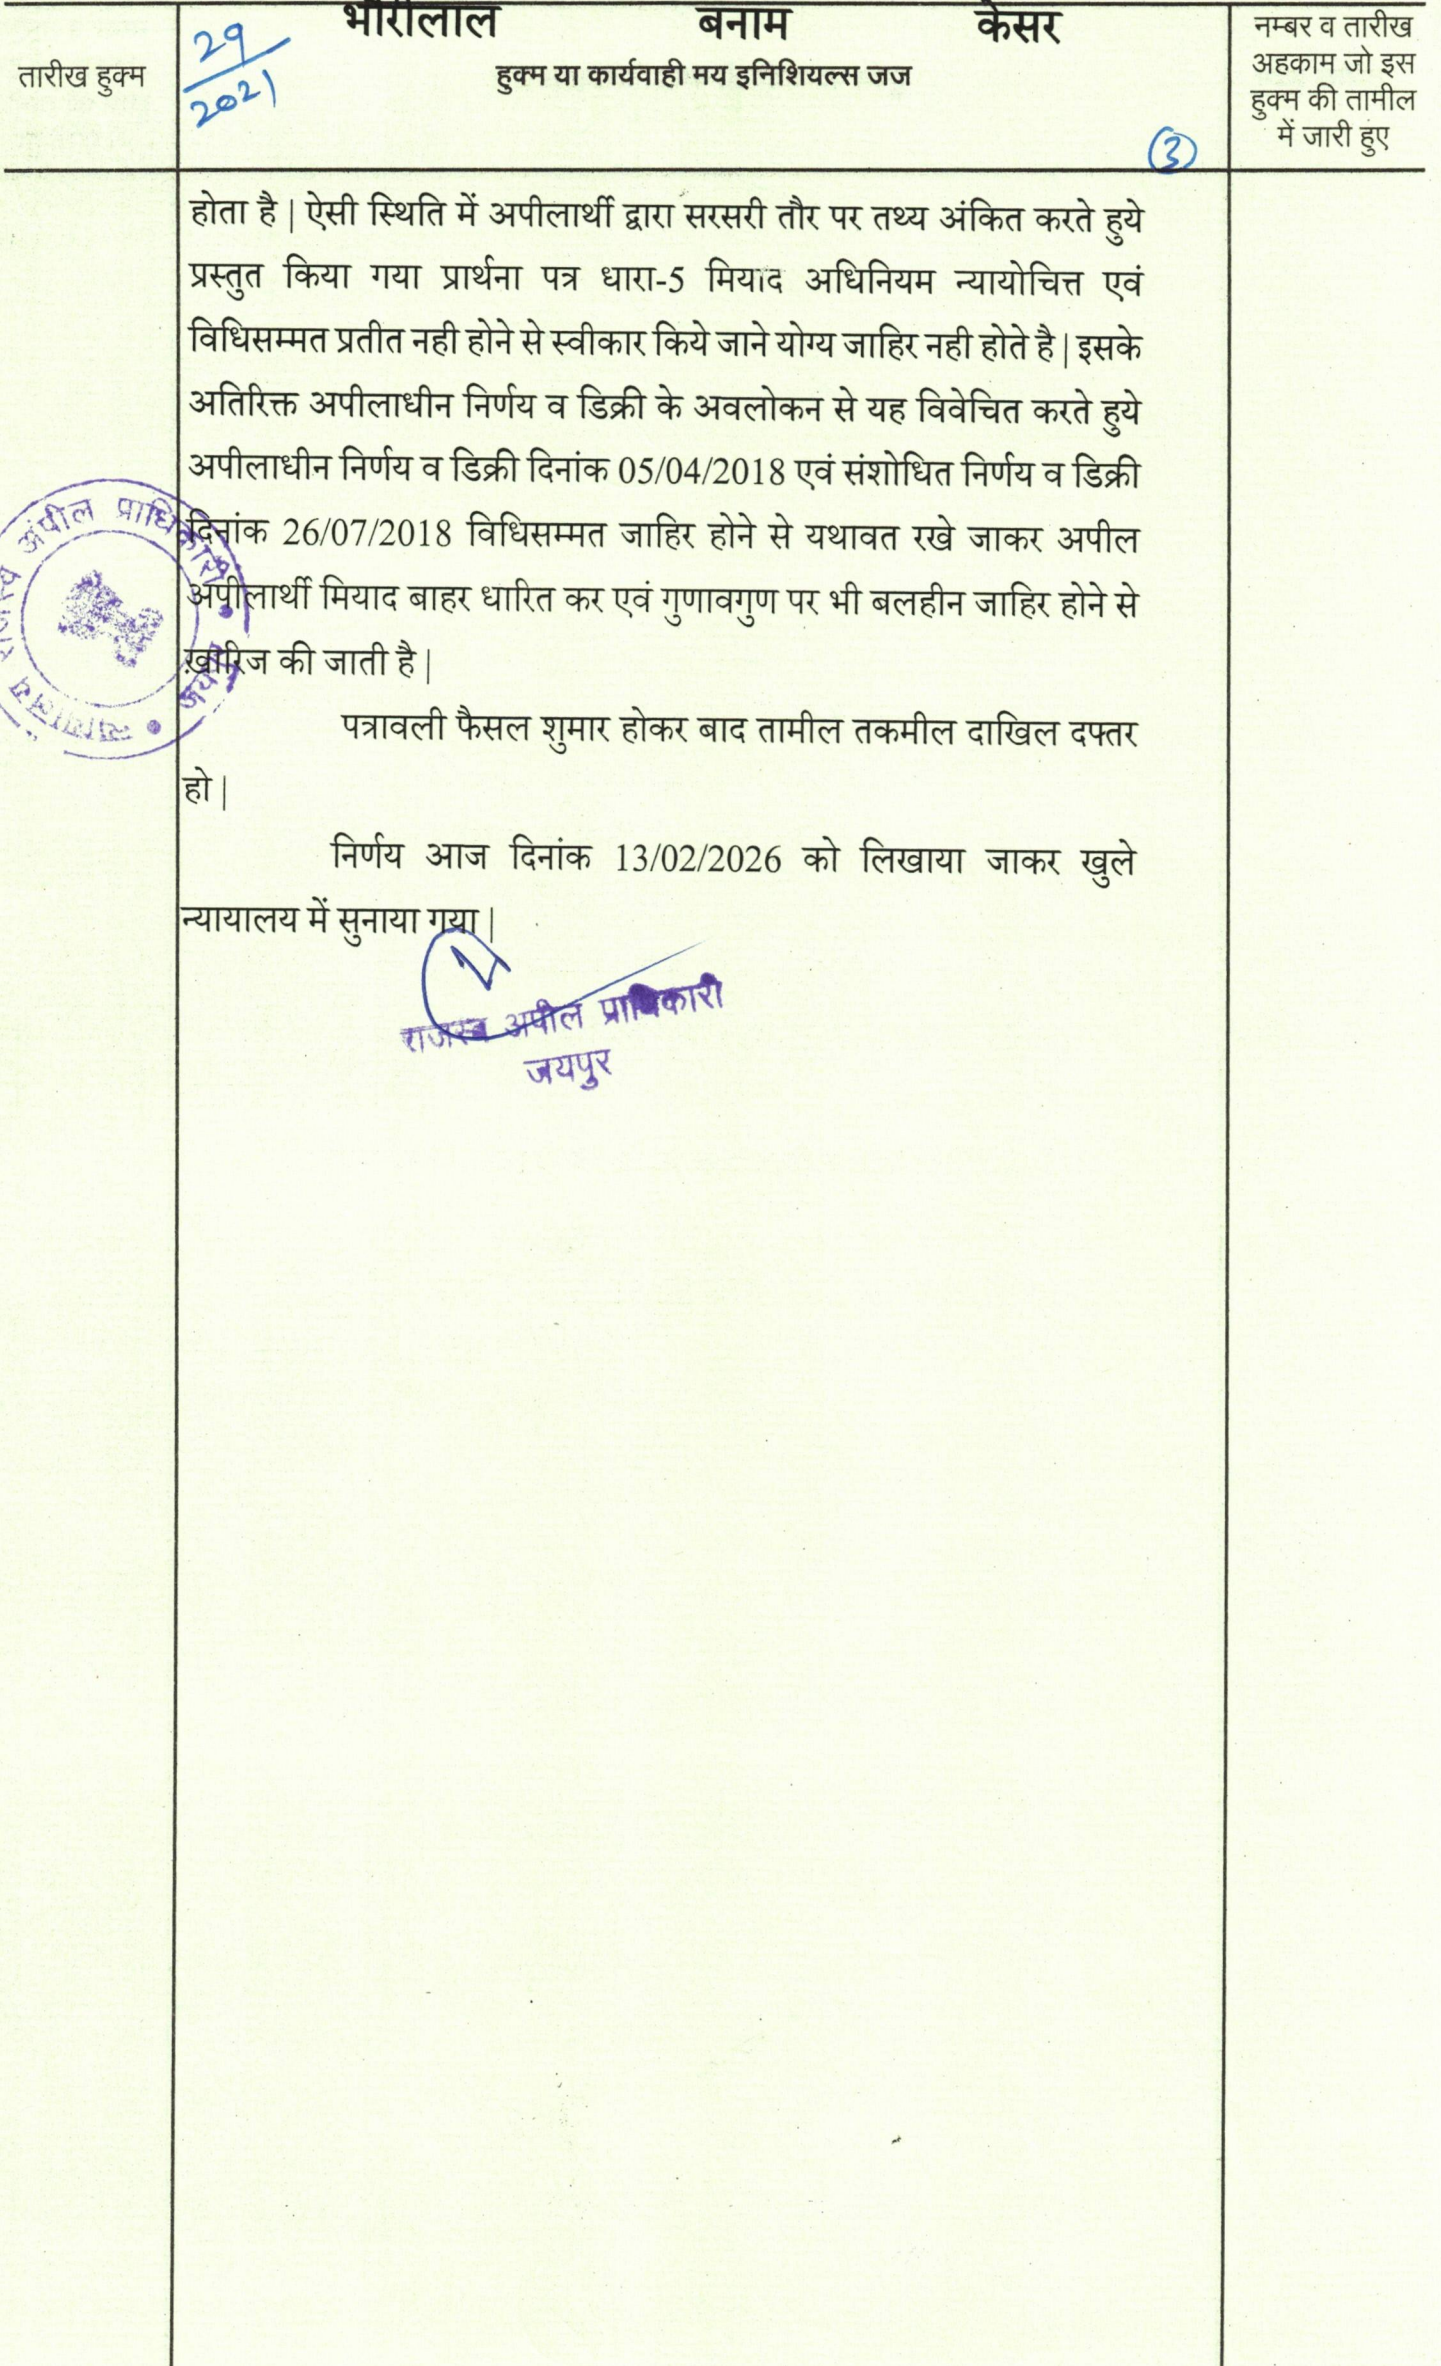 भौरीलाल बनाम केसर
तारीख हुक्म
29/2021
हुक्म या कार्यवाही मय इनिशियल्स जज
नम्बर व तारीख
अहकाम जो इस
हुक्म की तामील
में जारी हुए
3
होता है | ऐसी स्थिति में अपीलार्थी द्वारा सरसरी तौर पर तथ्य अंकित करते हुये
प्रस्तुत किया गया प्रार्थना पत्र धारा-5 मियाद अधिनियम न्यायोचित्त एवं
विधिसम्मत प्रतीत नही होने से स्वीकार किये जाने योग्य जाहिर नही होते है | इसके
अतिरिक्त अपीलाधीन निर्णय व डिक्री के अवलोकन से यह विवेचित करते हुये
अपीलाधीन निर्णय व डिक्री दिनांक 05/04/2018 एवं संशोधित निर्णय व डिक्री
दिनांक 26/07/2018 विधिसम्मत जाहिर होने से यथावत रखे जाकर अपील
अपीलार्थी मियाद बाहर धारित कर एवं गुणावगुण पर भी बलहीन जाहिर होने से
ख़ारिज की जाती है |
पत्रावली फैसल शुमार होकर बाद तामील तकमील दाखिल दफ्तर
हो |
निर्णय आज दिनांक 13/02/2026 को लिखाया जाकर खुले
न्यायालय में सुनाया गया |
राजस्व अपील प्राधिकारी
जयपुर
न्यायालय राजस्व अपील प्राधिकारी
जयपुर